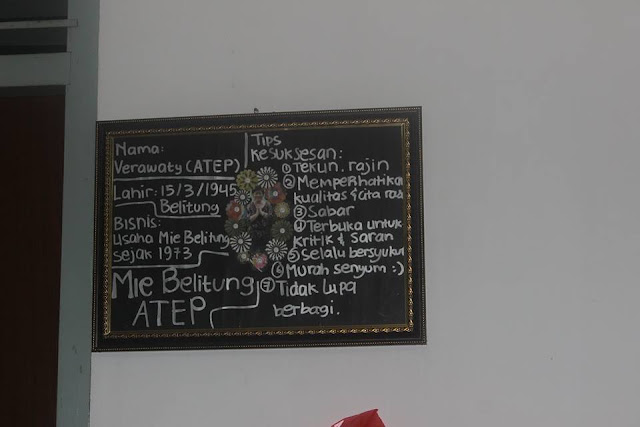 Nama:
Verawaty (ATEP)
Lahir: 15/3/1945
Belitung
Bisnis:
Usaha Mie Belitung
sejak 1973
Mie Belitung
ATEP
Tips
kesuksesan:
① Tekun. rajin
② Memperhatikan
kualitas & cita rasa
③ Sabar
④ Terbuka untuk
kritik & saran
⑤ Selalu bersyukur
⑥ Murah senyum :)
⑦ Tidak lupa
berbagi.